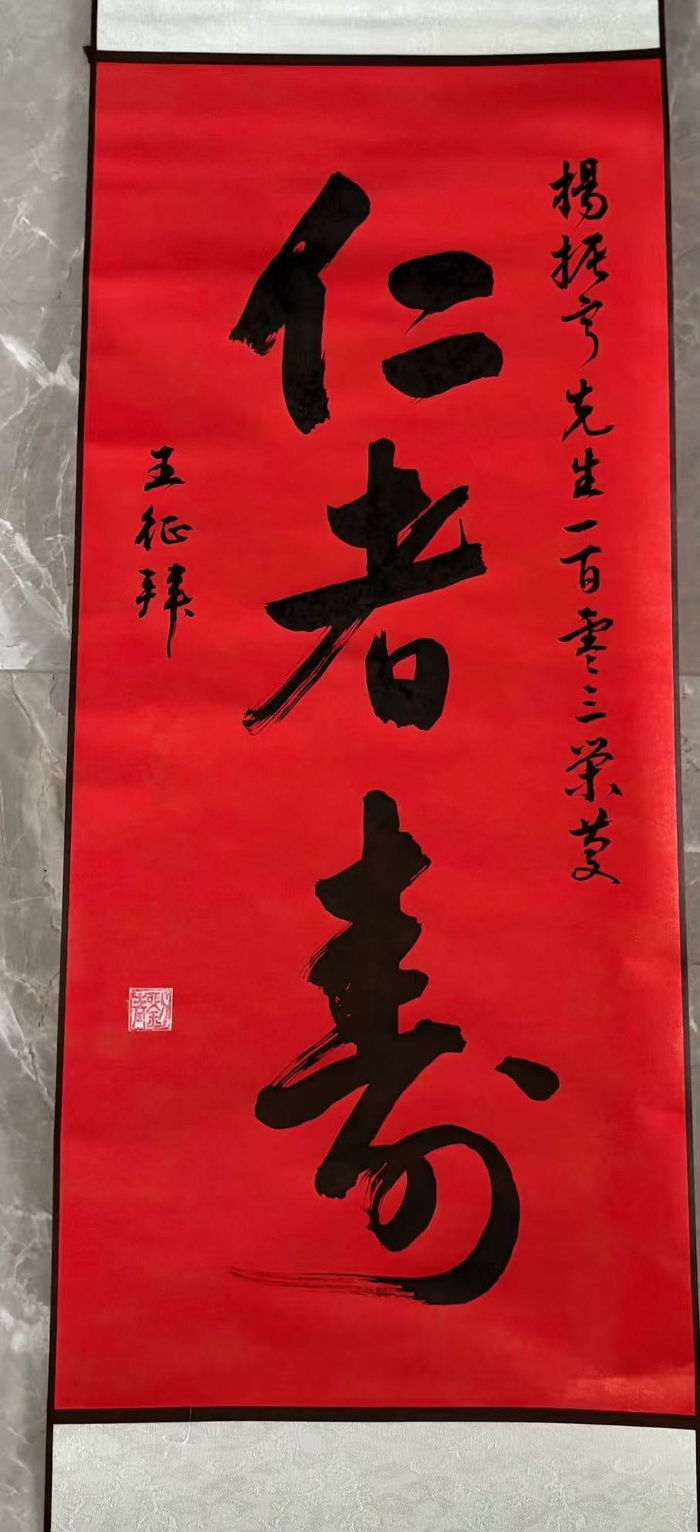 楊振宁先生一百零三荣慶
仁者寿
王征拜